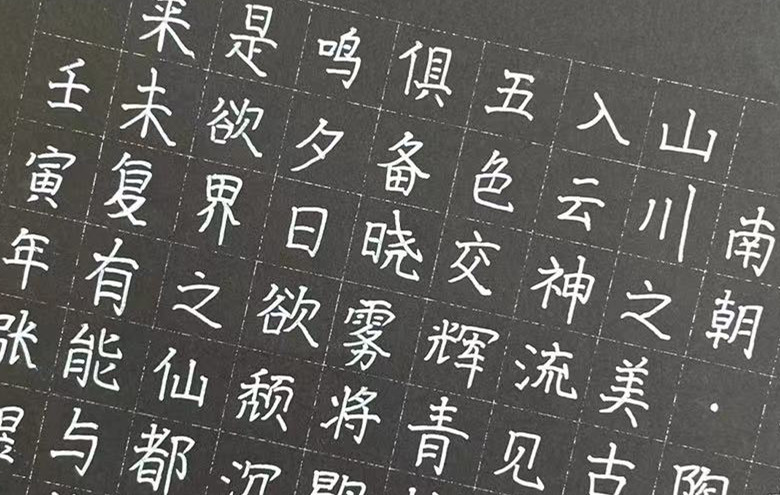 南朝·陶
山川之美古
入云神流见
五色交辉青
俱备晓雾将
鸣夕日欲颓沉
是欲界之仙都
来未复有能与
壬寅年张